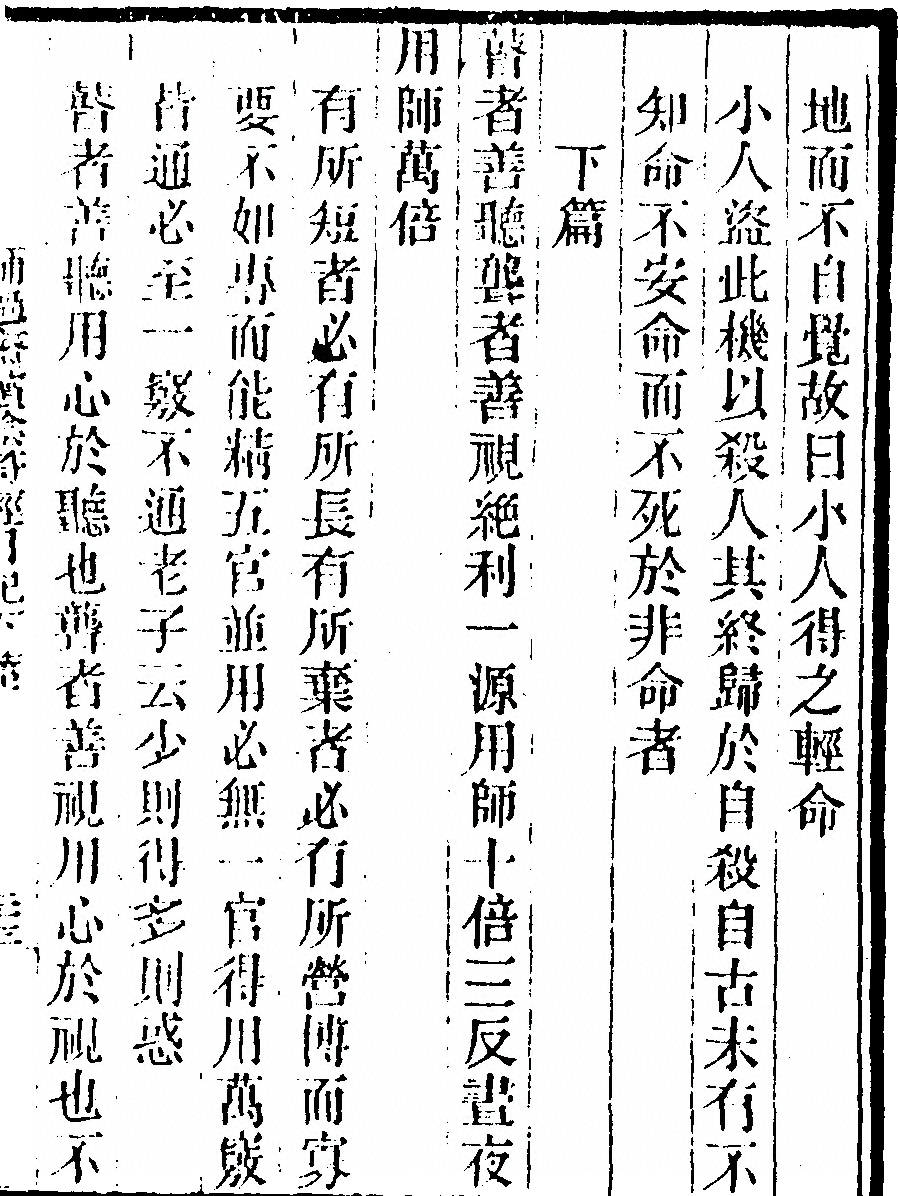 地而不自覺故曰小人得之輕命
小人盜此機以殺人其終歸於自殺自古未有不
知命不安命而不死於非命者
下篇
瞽者善聽聾者善視絶利一源用師十倍三反晝夜
用師萬倍
有所短者必有所長有所棄者必有所營博而寡
要不如專而能精五官並用必無一官得用萬竅
皆通必至一竅不通老子云少則得多則惑
瞽者善聽用心於聽也聾者善視用心於視也不